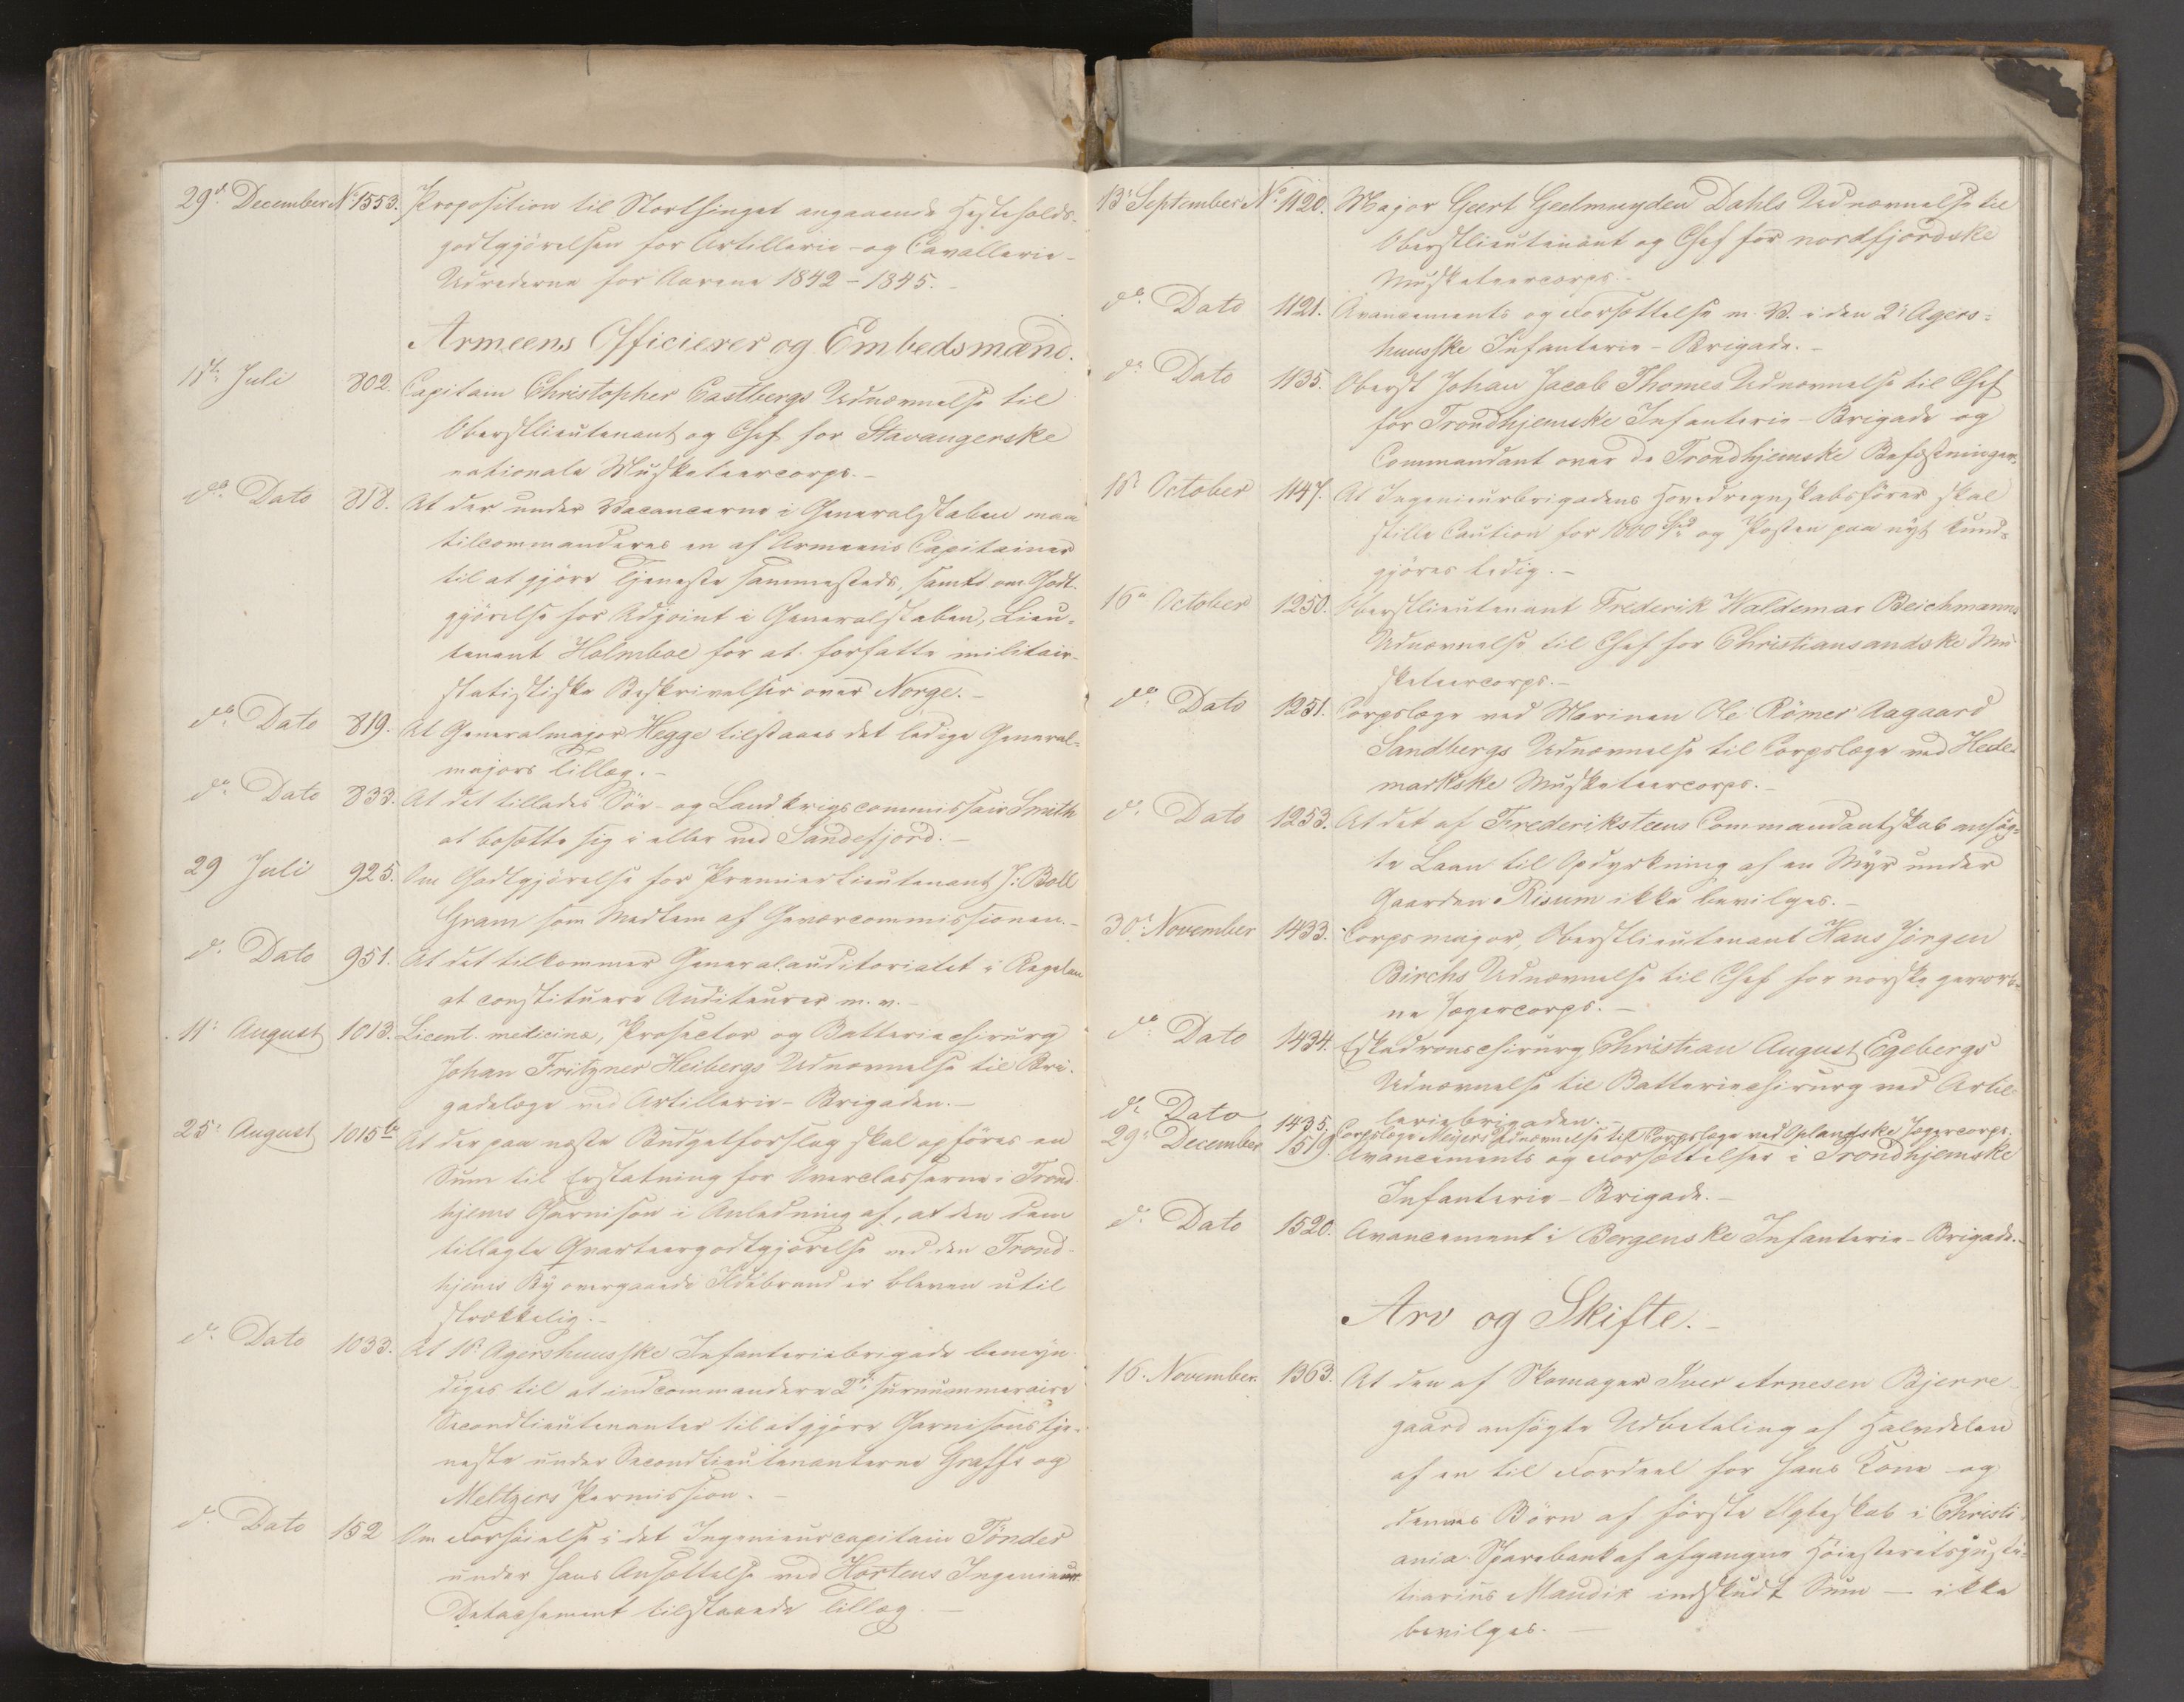 29de December No 1553. Proposition til Storthinget angaaende Hesteholds-
godtgjörelsen for Artillerie- og Cavallerie-
Udrederne for Aarene 1842-1845.-
Armeens Officierer og Embedsmænd.
15de Juli 802. Capitain Christopher Castbergs Udnævnelse til
Oberstlieutenant og Chef for Stavangerske
nationale Musketeercorps.-
do Dato 818. At der under Vacancerne i Generalstaben maa
tilcommanderes en af Armeens Capitainer
til at gjöre Tjeneste sammesteds, samt om Godt-
gjörelse for Adjoint i Generalstaben, Lieu-
tenant Holmboe for at forfatte militair-
statistiske Beskrivelser over Norge.-
do Dato 819. At Generalmajor Hegge tilstaaes det ledige General-
majors Tillæg.-
do Dato 833. At det tillades Söe- og Landkrigscommissair Smith
at bosætte sig i eller ved Sandefjord.-
29 Juli 925. Om Godtgjörelse for Premierlieutenant J. Boll
Gram som Medlem af Geværcommissionen.-
do Dato 951. At det tilkommer Generalauditoriatet i Regelen
at constituere Auditeurer m. v.-
11: August 1013. Licent. medicinæ, Prosector og Batteriechirurg
Johan Fritzner Heibergs Udnævnelse til Bri-
gadelæge ved Artillerie-Brigaden.-
25: August 1015 b. At der paa næste Budgetforslag skal opföres en
Sum til Erstatning for Overclasserne i Trond-
hjems Garnison i Anledning af, at den dem
tillagte Qvarteergodtgjörelse ved den Trond-
hjems By overgaaede Ildebrand er bleven util-
strækkelig.-
do Dato 1033. At 1ste Agershuusske Infanteriebrigade bemyn-
diges til at indcommandere 2de surnummeraire
Secondlieutenanter til at gjöre Garnisonstje-
neste under Secondlieutenanterne Graffs og
Meltzers Permission.-
do Dato 152 Om Forhöielse i det Ingenieurcapitain Tönder
under hans Ansættelse ved Hortens Ingenieur-
Detachement tilstaaede Tillæg.-
13: September No 1120. Major Geert Geelmuyden Dahls Udnævnelse til
Oberstlieutenant og Chef for nordfjordske
Musketeercorps.-
do Dato 1121. Avancements og Forsættelse m. V. i den 2: Agers-
huusske Infanterie-Brigade.-
do Dato 1135. Oberst Johan Jacob Thomes Udnævnelse til Chef
for Trondhjemske Infanterie-Brigade og
Commandant over de Trondhjemske Befæstninger.
1ste October 1147. At Ingenieurbrigadens Hovedregnskabsförer skal
stille Caution for 1000 Spd og Posten paa nyt kund-
gjöres ledig.-
16de October 1250. Oberstlieutenant Frederik Waldemar Beichmanns
Udnævnelse til Chef for Christiansandske Mu-
sketeercorps.-
do Dato 1251. Corpslæge ved Marinen Ole Römer Aagaard
Sandbergs Udnævnelse til Corpslæge ved Hede-
markske Musketeercorps.-
do Dato 1253. At det af Fredericksteens Commandantskab ansög-
te Laan til Opdyrkning af en Myr under
Gaarden Risum ikke bevilges.-
30: November 1433. Corpsmajor, Oberstlieutenant Hans Jörgen
Birchs Udnævnelse til Chef for norske gevorb-
ne Jægercorps.-
do Dato 1434. Eskadronschirurg Christian August Egebergs
Udnævnelse til Batteriechirurg ved Artil-
leriebrigaden.-
do Dato 1435. Corpslæge Meyers Udnævnelse til Corpslæge ved Oplandske Jægercorps.
29: December 1519. Avancements og Forsættelser i Trondhjemske
Infanterie-Brigade.-
do Dato 1520. Avancement i Bergenske Infanterie-Brigade.-
Arv og Skifte.-
16. November 1363. At den af Skomager Iver Arnesen Bjerre-
gaard ansögte Udbetaling af Halvdelen
af en til Fordeel for hans Kone og
dennes Börn af förste Ægteskab i Christi-
ania Sparebank af afgangne Höiesteretsjusti-
tiarius Mandix indskudt Sum - ikke
bevilges.-